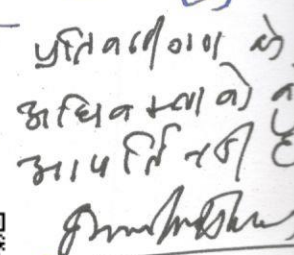 प्रतिवादीगण के
अधिवक्ता को
आपत्ति नही है